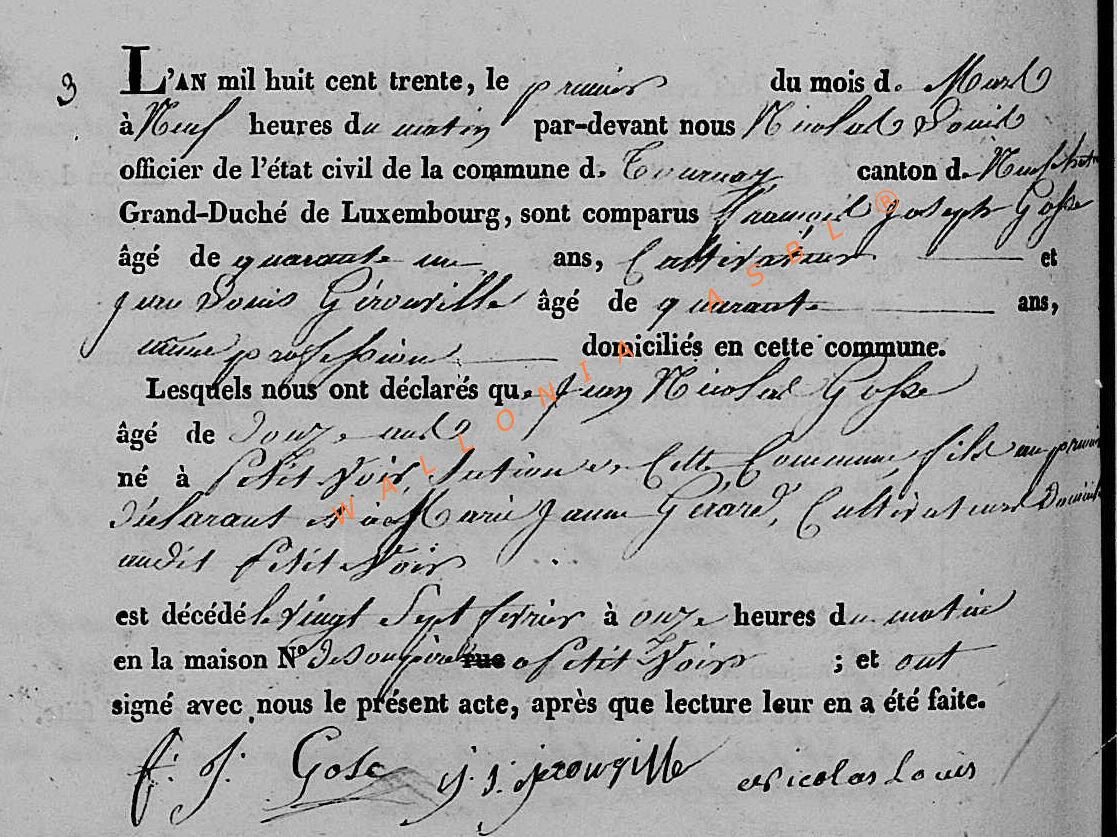 3
L'AN mil huit cent trente, le premier du mois d. Mars
à Neuf heures du matin par-devant nous Nicolas Louis
officier de l'état civil de la commune d. Tournay canton d. Neufchateau
Grand-Duché de Luxembourg, sont comparus François Joseph Gosse
âgé de quarante un ans, Cultivateur et
Jean Louis Gérouville âgé de quarante ans,
même profession domiciliés en cette commune.
Lesquels nous ont déclarés que Jean Nicolas Gosse
âgé de douze ans
né à Petit Voir, Section de Cette Commune, fils au premier
déclarant et à Marie Jeanne Gérard, Cultivateurs Domiciliés
audit Petit Voir ...
est décédé le vingt Sept fevrier à onze heures du matin
en la maison N° de son père rue a Petit Voir ; et ont
signé avec nous le présent acte, après que lecture leur en a été faite.
f: J: Gosse J. L. Gerouville Nicolas Louis
WALLONIA ASBL ®